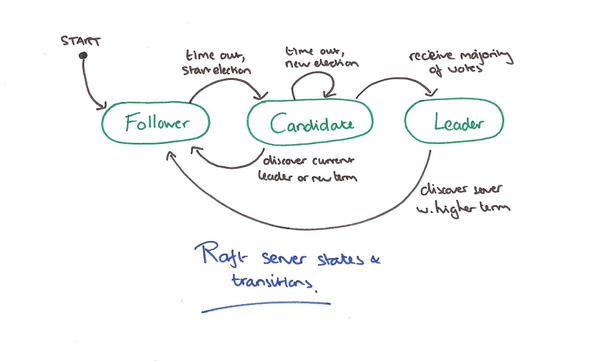 START
time out,
start election
time out,
new election
receive majority
of votes
Follower
Candidate
Leader
discover current
leader or new term
discover server
w. higher term
Raft server states &
transitions.